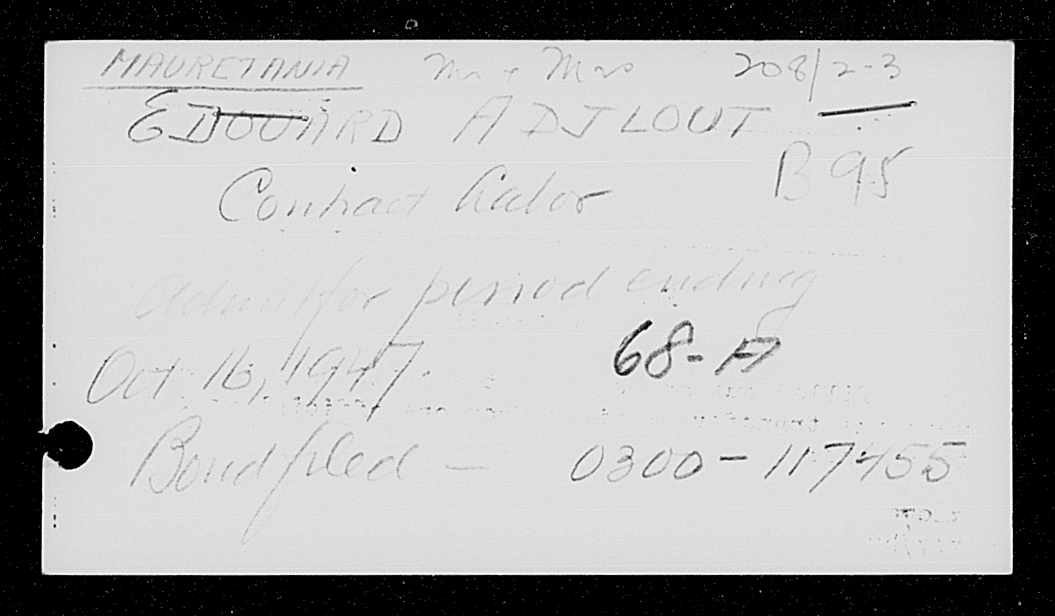 MAURETANIA Mr + Mrs 208/2-3
EDOUARD ADJLOUT
B 95
Contract Labor
Adm for period ending
Oct 16, 1947. 68-A
Bond filed - 0300-117455